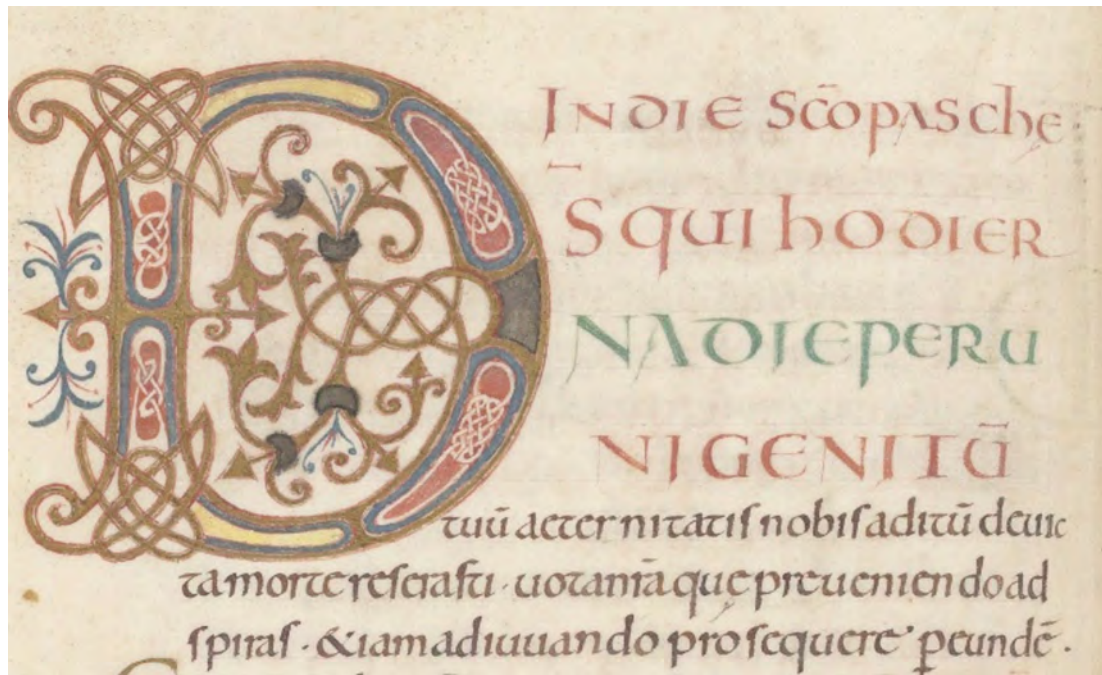 IN DIE SC̄O PASCHE
D̄S QUI HODIER
NA DIE PER U
NIGENITŪ
tuū aeternitatis nobis aditū deuic
ta morte reserasti · uota nr̄a que preueniendo ad
spiras · & iam adiuuando prosequere · p̱ eundē ·